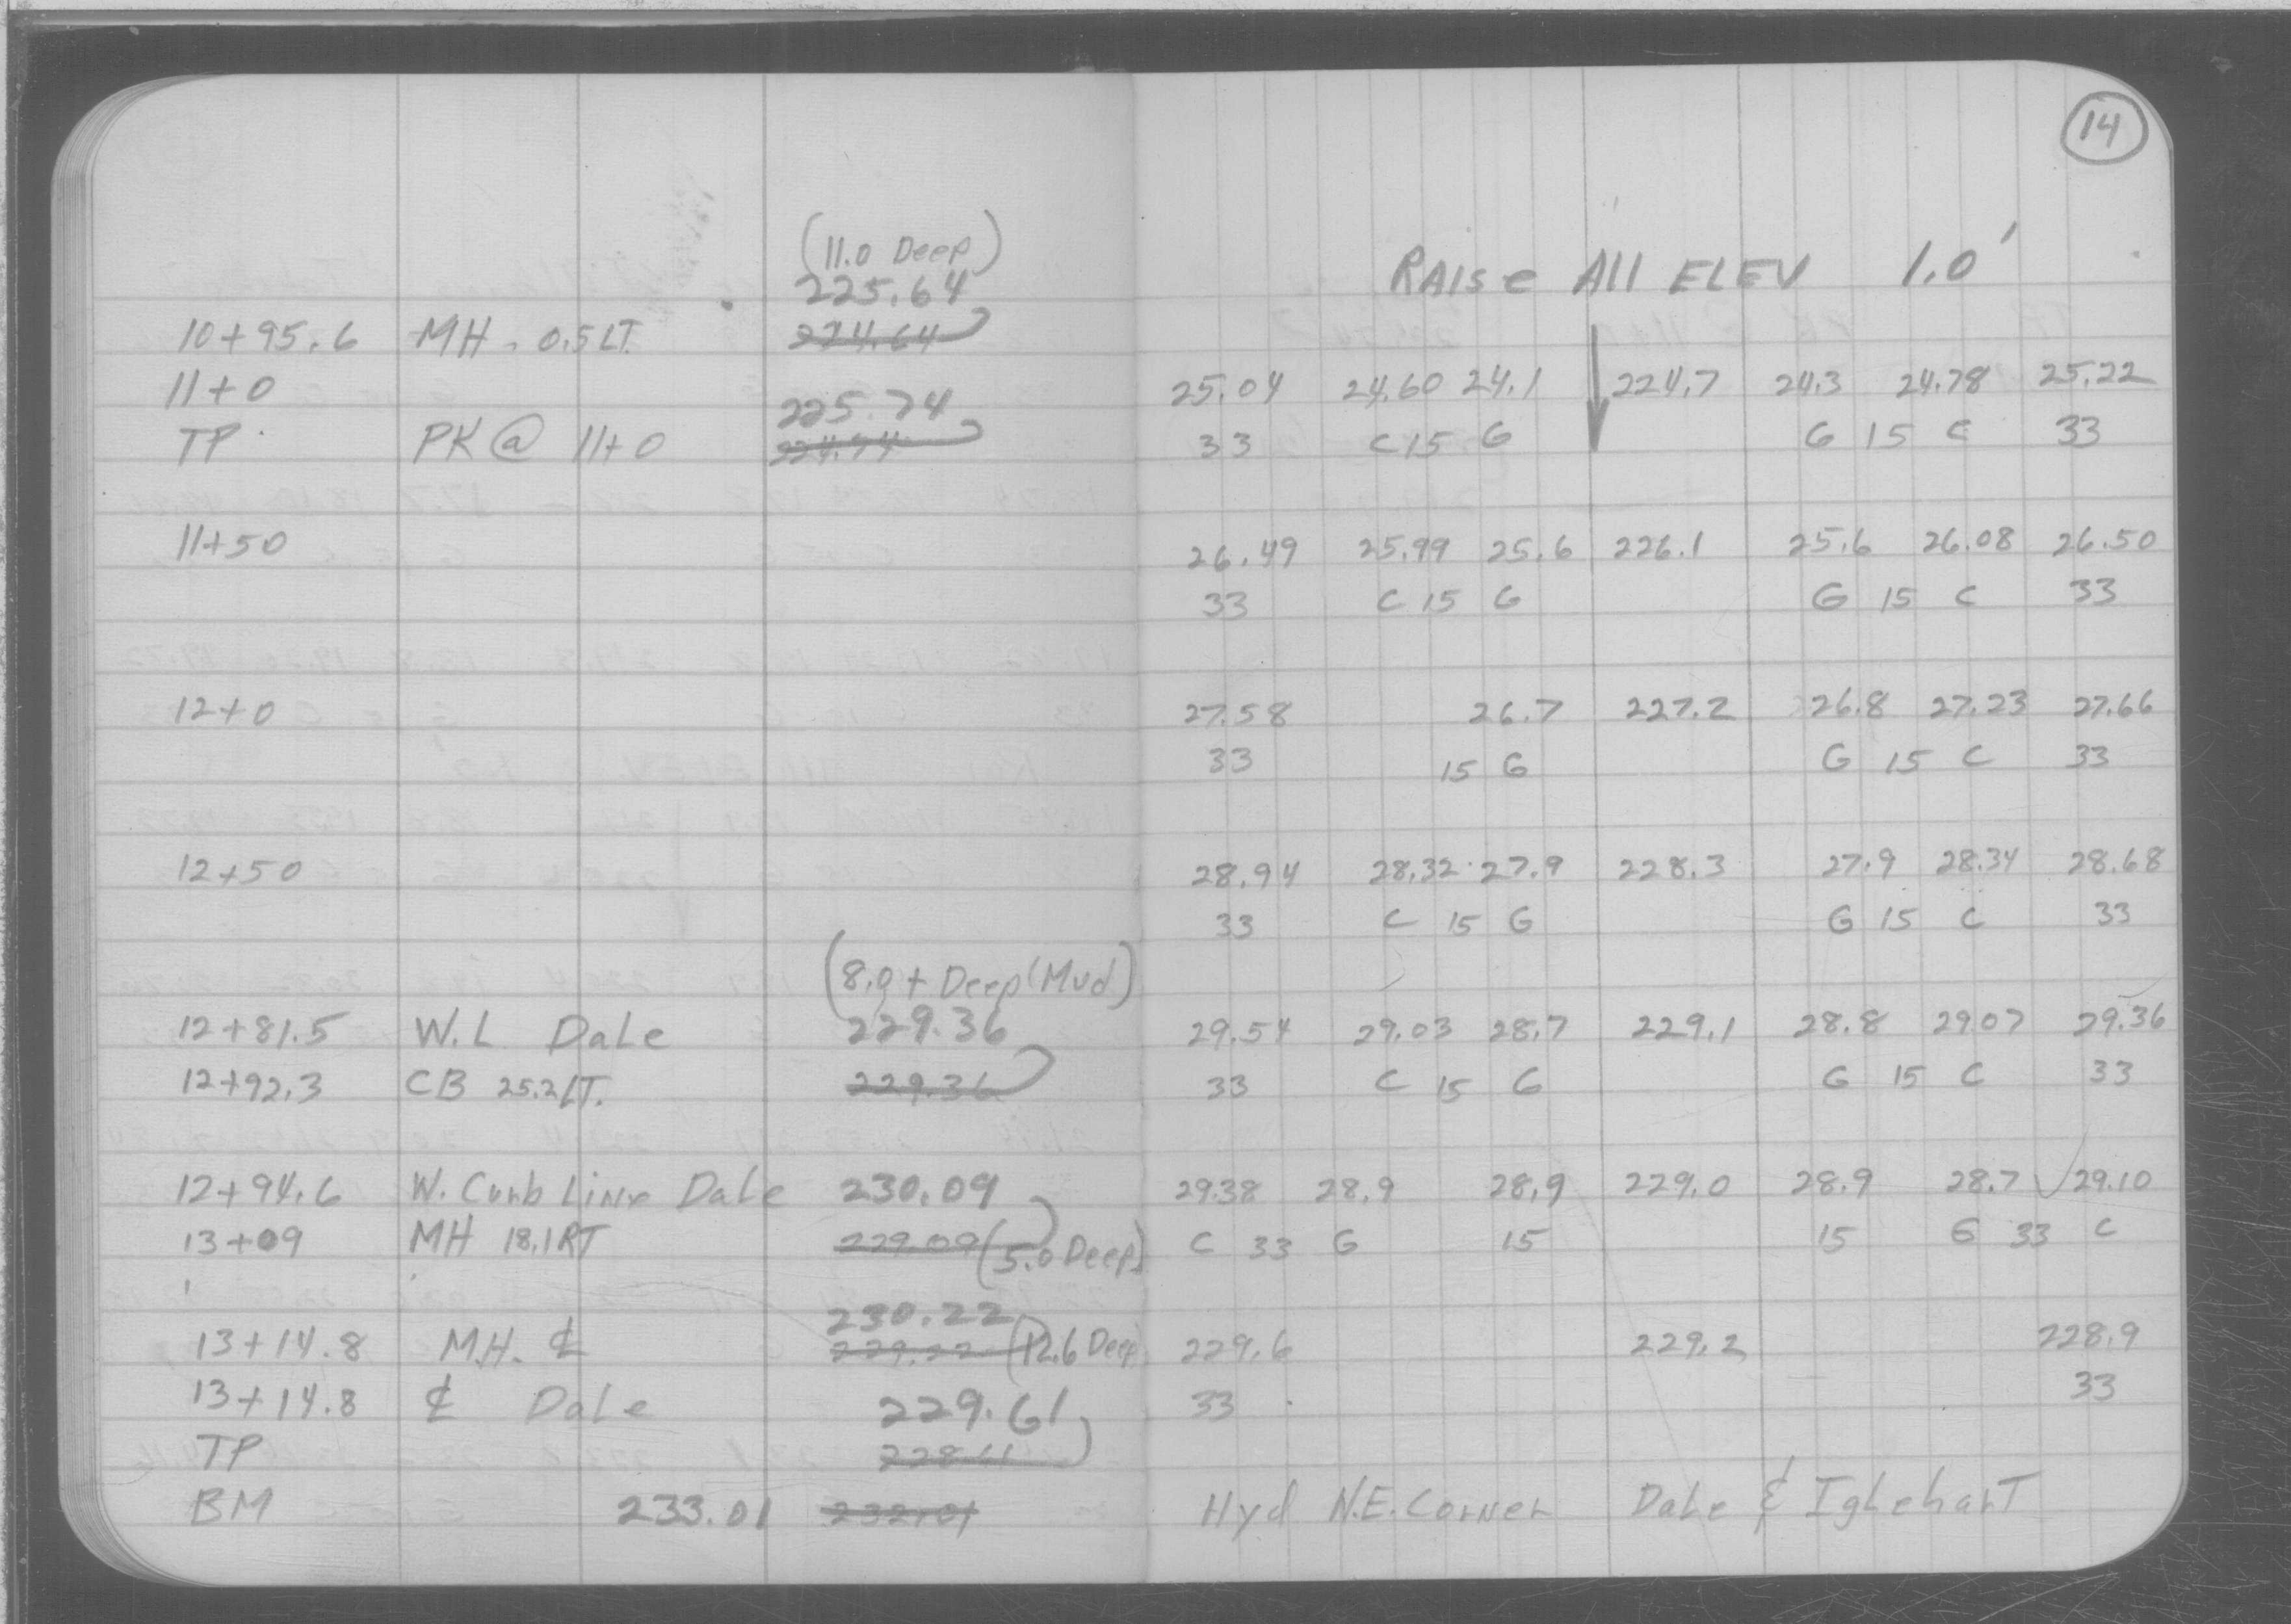 14
(11.0 Deep)
225.64
RAISE All ELEV 1.0'
10+95.6 MH - 0.5 LT. 224.64
11+0 225.74 25.04 24.60 24.1 224.7 24.3 24.78 25.22
TP PK @ 11+0 224.74 33 C 15 G G 15 C 33
11+50 26.49 25.99 25.6 226.1 25.6 26.08 26.50
33 C 15 G G 15 C 33
12+0 27.58 26.7 227.2 26.8 27.23 27.66
33 15 G G 15 C 33
12+50 28.94 28.32 27.9 228.3 27.9 28.34 28.68
33 C 15 G G 15 C 33
(8.0+ Deep (Mud)
12+81.5 W.L Dale 229.36 29.54 29.03 28.7 229.1 28.8 29.07 29.36
12+92.3 CB 25.2 LT. 229.36 33 C 15 G G 15 C 33
12+94.6 W. Curb Line Dale 230.09 29.38 28.9 28.9 229.0 28.9 28.7 ✓ 29.10
13+09 MH 18.1 RT 229.09 (5.0 Deep) C 33 G 15 15 G 33 C
230.22
13+14.8 M.H. ₵ 229.22 (12.6 Deep) 229.6 229.2 228.9
13+14.8 ₵ Dale 229.61 33 33
TP 228.61
BM 233.01 232.01 Hyd N.E. Corner Dale & Iglehart